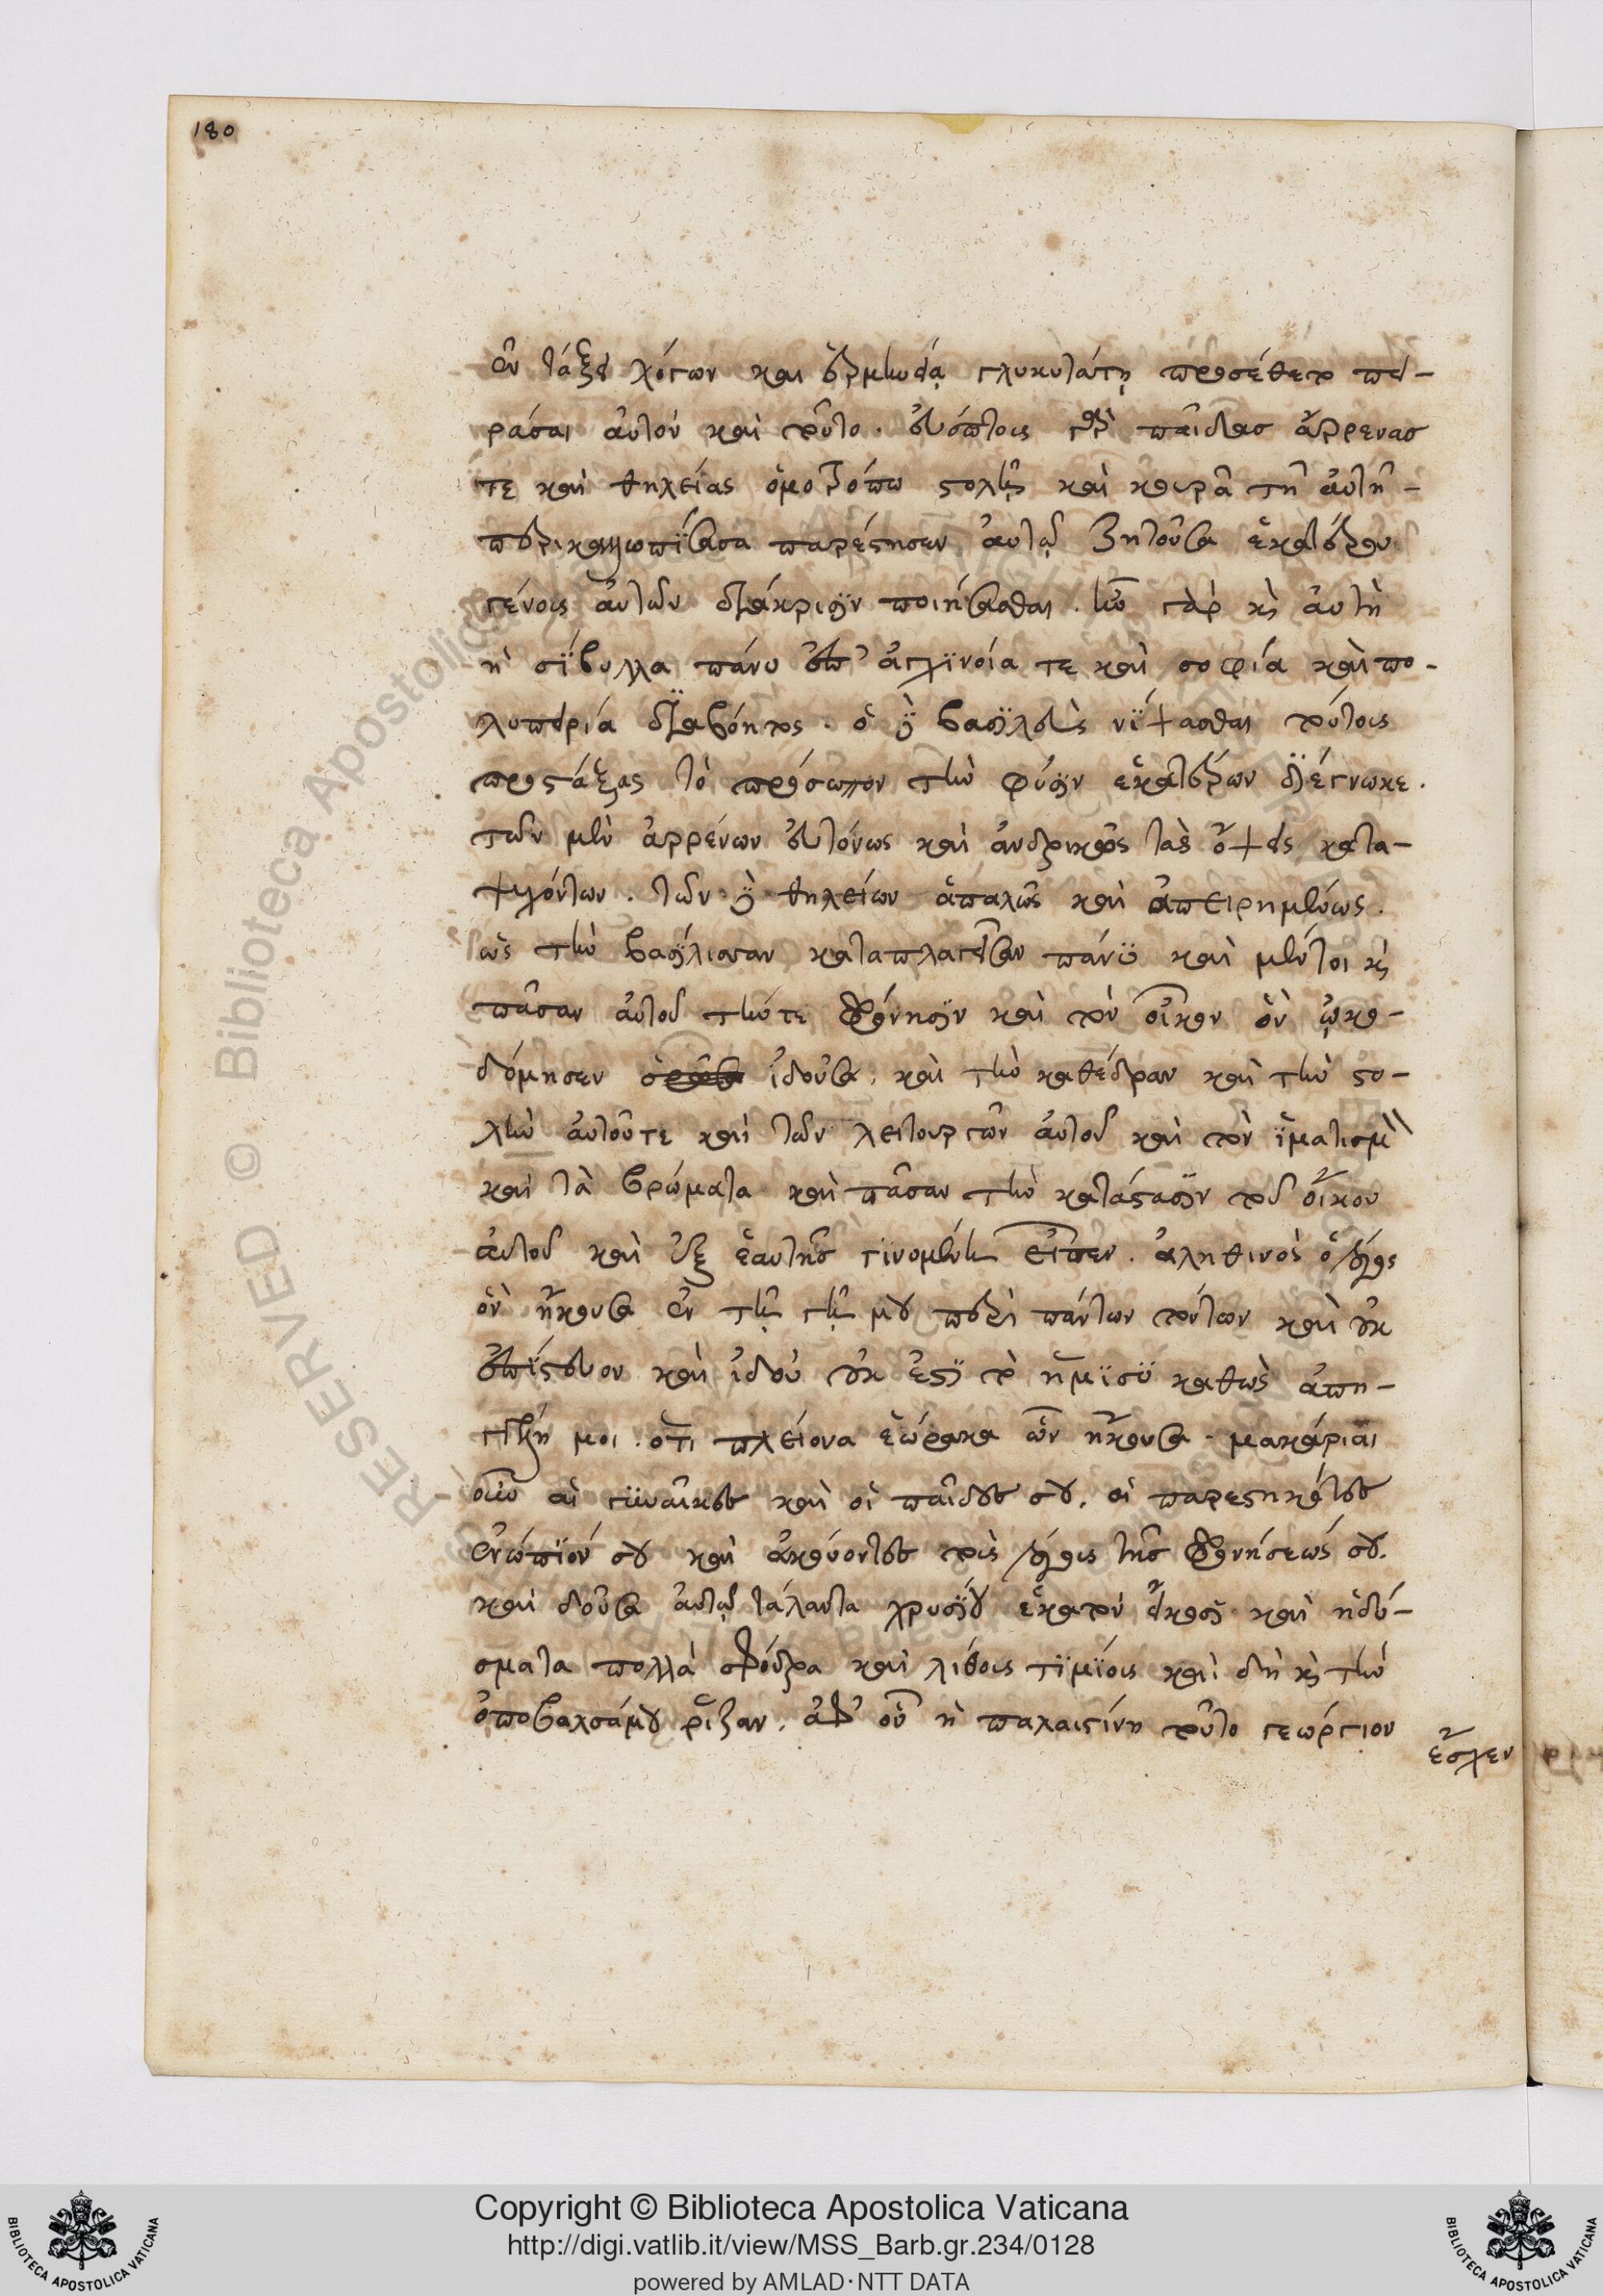 180
ἐν τάξει λόγων καὶ ἑρμηνεία γλυκυτάτη προσέθετο πει-
ράσαι αὐτὸν καὶ τοῦτο. εὐόπτους γὰρ παῖδας ἄρρενας
τε καὶ θηλείας ὁμοτρόπω στολῆ καὶ κουρᾶ τῆ αὐτῆ-
παρέστησεν αὐτῷ ζητοῦσα ἑκατέρου
γένους αὐτῶν διάκρισϊν ποιήσασθαι. ἦν γὰρ κὴ αὐτὴ
ἡ σΐβυλλα πάνυ ἐπ' ἀγχϊνοία τε καὶ σοφία καὶ πο-
λυπειρία διαβόητος. ὁ δὲ βασϊλεὺς νΐψασθαι τούτους
προστάξας τὸ πρόσωπον τὴν φύσϊν ἑκατέρων διέγνωκε.
τῶν μὲν ἀρρένων εὐτόνως καὶ ἀνδρικῶς τὰς ὄψεις κατα-
ψιλόντων. τῶν δὲ θηλείων ἁπαλῶς καὶ ἀπειρημένως.
ὡς τὴν βασίλισσαν καταπλαγεῖσαν πάνϋ καὶ μέντοι κὴ
πᾶσαν αὐτοῦ τήντε φρόνησϊν καὶ τὸν οἶκον ὃν ᾠκο-
δόμησεν ὁρῶσα ἰδοῦσα, καὶ τὴν καθέδραν καὶ τὴν στο-
λὴν αὐτοῦτε καὶ τῶν λειτουργῶν αὐτοῦ καὶ τὸν ἱματισμὸν
καὶ τὰ βρώματα καὶ πᾶσαν τὴν κατάστασϊν τοῦ οἴκου
αὐτοῦ καὶ ἐξ ἑαυτῆς γϊνομένη εἶπεν. ἀληθινὸς ὁ λόγος
ὃν ἤκουσα ἐν τῆ γῆ μου περὶ πάντων τούτων καὶ οὐκ
ἐπΐστευον καὶ ἰδού οὐκ ἐστϊ τὸ ἥμϊσϋ καθὼς ἀπη-
γγέλη μοι. ὅτι πλείονα ἑώρακα ὧν ἤκουσα. μακάριαι
οὖν αἱ γϋναῖκες καὶ οἱ παῖδές σου. οἱ παρεστηκότες
ἐνώπϊόν σου καὶ ἀκούοντες τοὺς λόγους τῆς φρονήσεώς σου.
καὶ δοῦσα αὐτῷ τάλαντα χρυσίου ἑκατὸν εἴκοσϊ καὶ ἡδύ-
σματα πολλὰ σφόδρα καὶ λίθους τϊμϊους καὶ δὴ κὴ τὴν
ὀποβαλσάμου ῥίζαν. ἀφ' οὗ ἡ παλαιστίνη τοῦτο γεώργιον
ἔσχεν
Copyright © Biblioteca Apostolica Vaticana
http://digi.vatlib.it/view/MSS_Barb.gr.234/0128
powered by AMLAD·NTT DATA
BIBLIOTECA APOSTOLICA VATICANA
BIBLIOTECA APOSTOLICA VATICANA